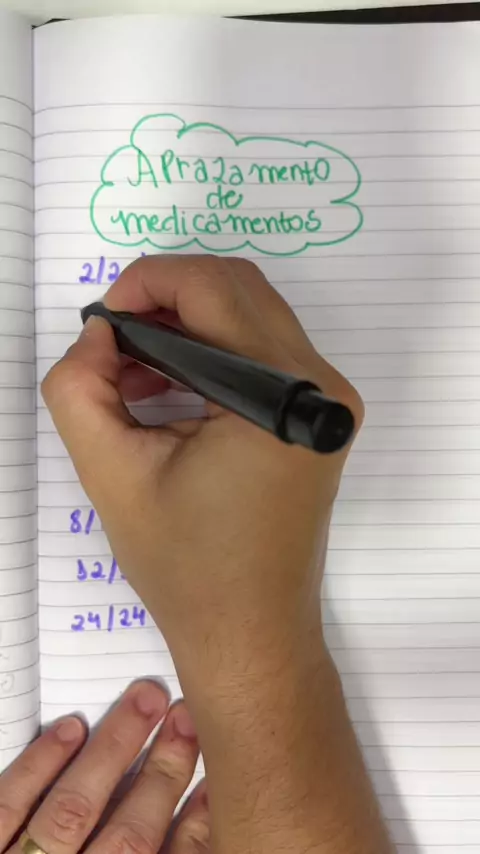 Aprazamento
de
medicamentos
2/2
8/
12/
24/24